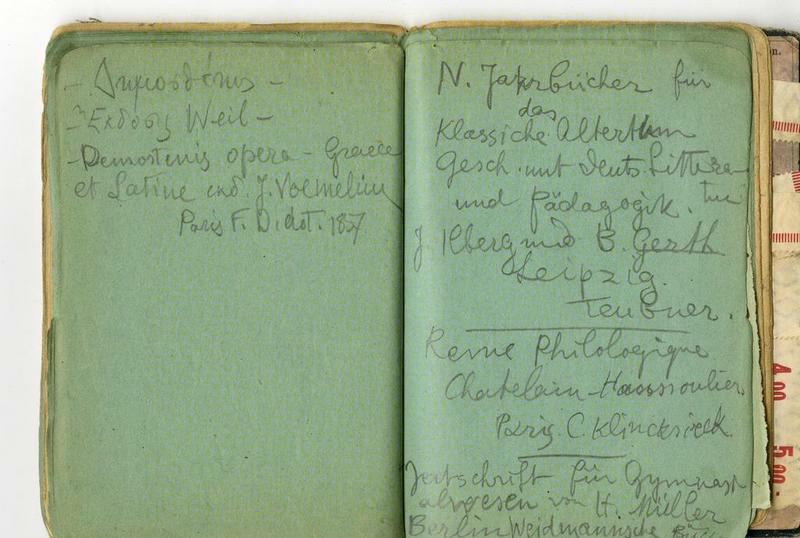 - Δημοσθένης -
- Ἔκδοσις Weil -
- Demostenis opera - Graece
et Latine exd. J. Voemelius
Paris F. Didot. 1857
N. Jahrbücher für
das
Klassiche Alterthum
Gesch. unt deuts. Littera-
tur
und Pädagogik.
J. Ilberg und B. Gerth
Leipzig.
Teubner.
Revue Philologique
Chatelain - Haussoulier
Paris. C. Klincksieck
Zeitschrift für Gymnasi-
alwesen von H. Müller
Berlin Weidmannsche Buch
4 00
5 00
n.